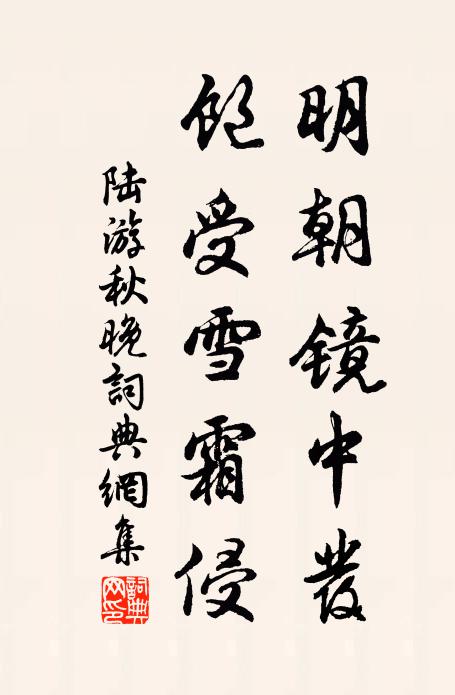 明朝镜中发
饱受雪霜侵
陆游秋晚詞典網集
詞典网印